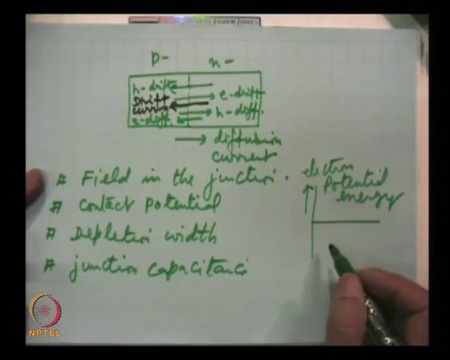 p-   n-
h-drift
e-drift
Drift
current
h-diff.
e-diff.
diffusion
current
# Field in the junction.
# contact potential
# Depletion width
# junction capacitance
electron
potential
energy
NPTEL